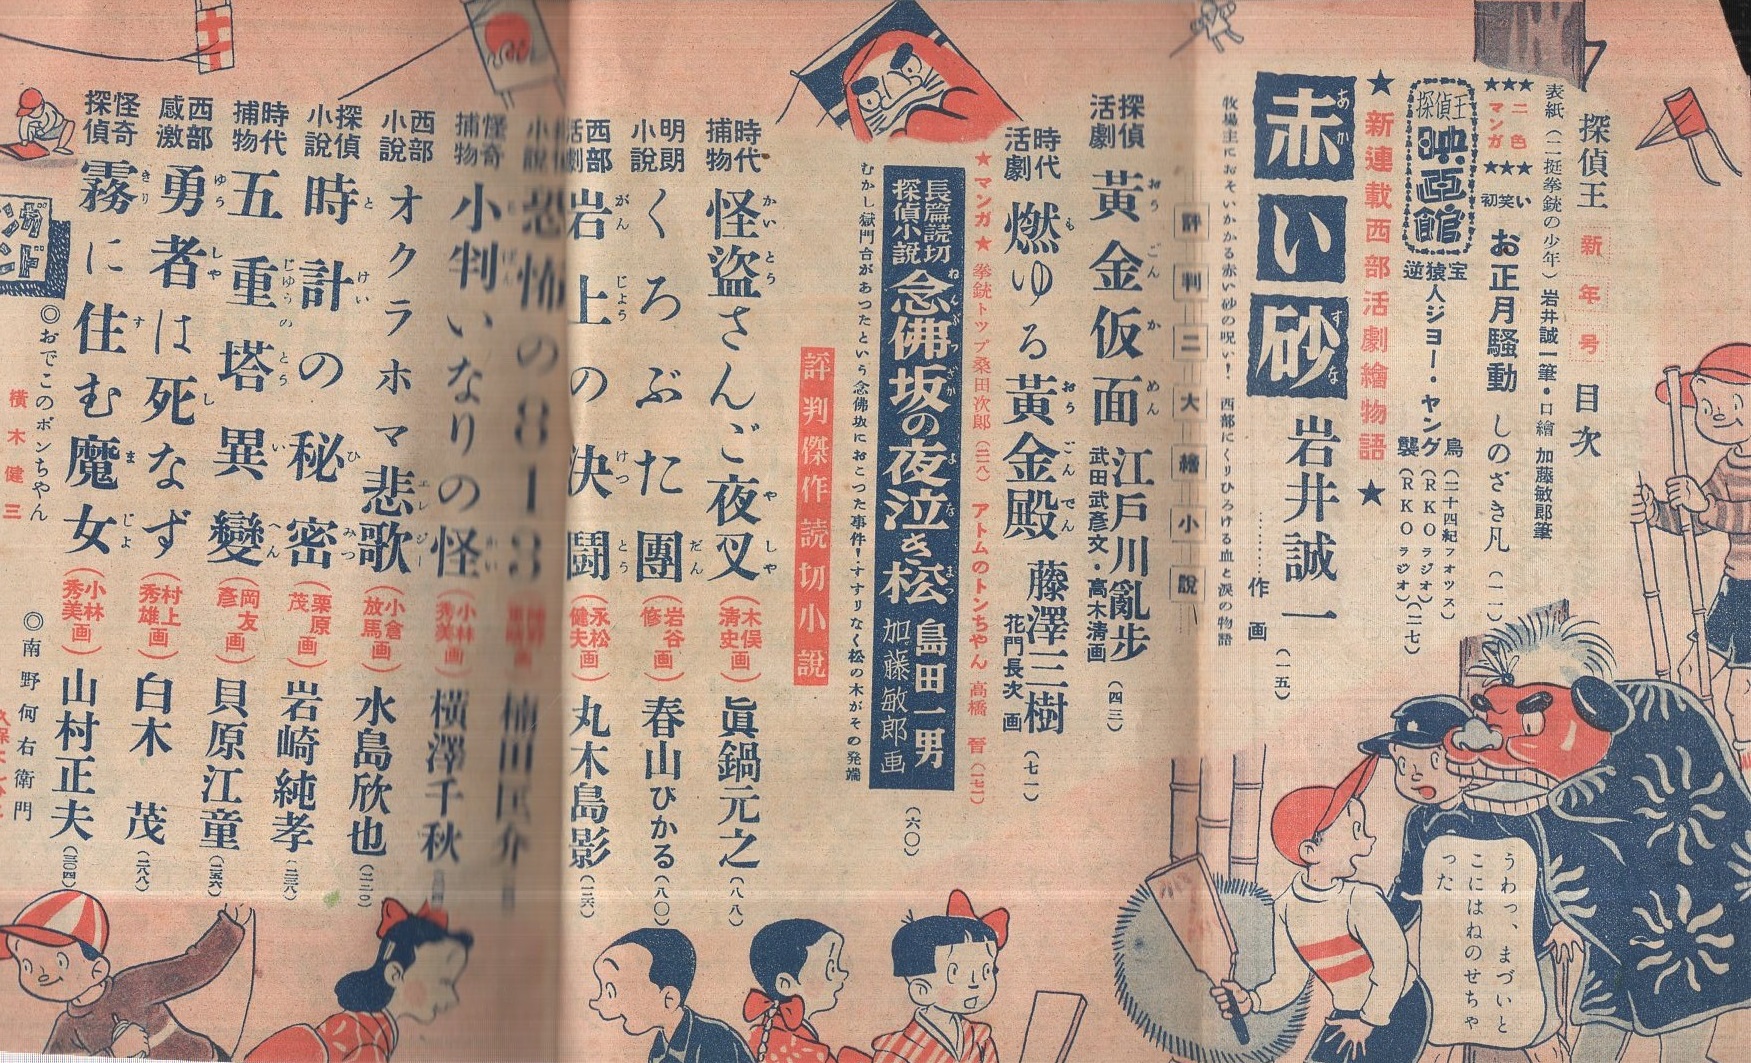 探偵王 新年号 目次
表紙(二挺拳銃の少年)岩井誠一筆・口繪 加藤敏郎筆
★★★二色マンガ★★★
初笑い お正月騒動 しのざき凡
探偵王映画館
宝島(二十四紀フォックス)
猿人ジョー・ヤング(RKOラジオ)
逆襲(RKOラジオ)(二七)
★新連載西部活劇繪物語★
赤い砂 岩井誠一 作画(一五)
あか すな
牧場主におそいかかる赤い砂の呪い!西部にくりひろげる血と涙の物語
評判二大繪小説
探偵活劇 黃金仮面 江戸川亂歩 武田武彦文・高木清画(四三)
おうごんかめん
時代活劇 燃ゆる黃金殿 藤澤三樹 花門長次画(七一)
も おうごんでん
★マンガ★ 拳銃トップ 桑田次郎 アトムのトンちゃん 高橋 晉
長篇読切探偵小説 念佛坂の夜泣き松 島田一男 加藤敏郎画(六〇)
ねんぶつざか よな まつ
むかし獄門台があつたという念佛坂におこつた事件!すすりなく松の木がその発端
評判傑作読切小說
時代捕物 怪盗さんご夜叉(木俣清史画)眞鍋元之(八八)
かいとう やしや
明朗小說 くろぶた團(岩谷修画)春山ひかる(八〇)
だん
西部活劇 岩上の決闘(永松健夫画)丸木島影
がんじょう けつとう
小說 恐怖の813 楠田匡介
怪奇捕物 小判いなりの怪(小林秀美画)横澤千秋
西部小説 オクラホマ悲歌(小倉放馬画)水島欣也(二二〇)
エレジー
探偵小說 時計の秘密(栗原茂画)岩崎純孝
とけい ひみつ
時代捕物 五重塔異變(岡友彥画)貝原江童
じゅうのとう いへん
西部感激 勇者は死なず(村上秀雄画)白木 茂
ゆうしや し
怪奇探偵 霧に住む魔女(小林秀美画)山村正夫
きり す まじよ
◎おでこのポンちゃん 横木健三
◎南野何右衛門
うわっ、まづいと
こにはねのせちゃ
った